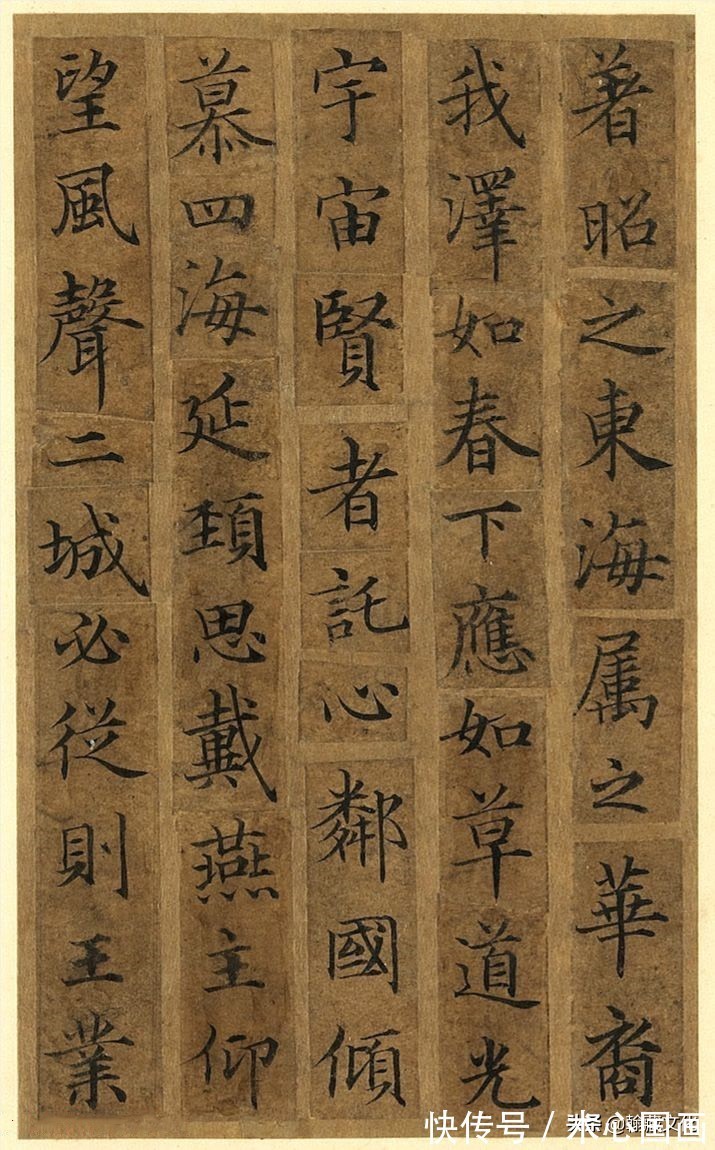 著昭之東海属之華裔
我澤如春下應如草道光
宇宙賢者託心鄰國傾
慕四海延頚思戴燕主仰
望風聲二城必從則王業
快传号／水心国画
头条 @翰藏文化